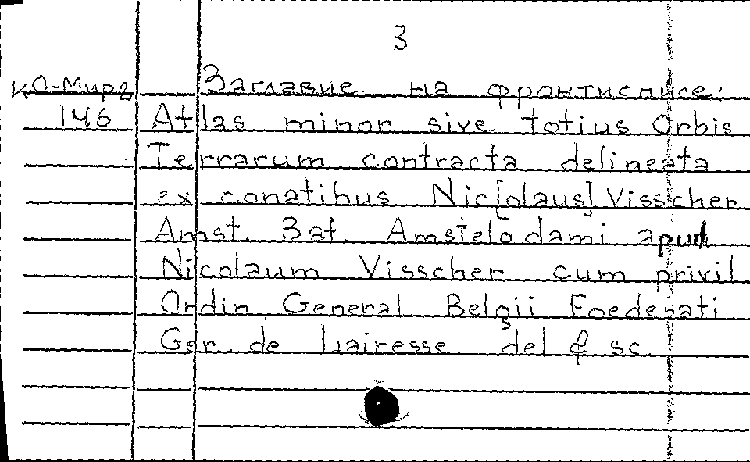 3
КО-Мир2 Заглавие на фронтисписе:
146 Atlas minor sive totius Orbis
Terrarum contracta delineata
ex conatibus Nic[olaus] Visscher
Amst. Bat. Amstelodami apud
Nicolaum Visscher cum privil
Ordin General Belgii Foederati
Ger. de Lairesse del & sc.